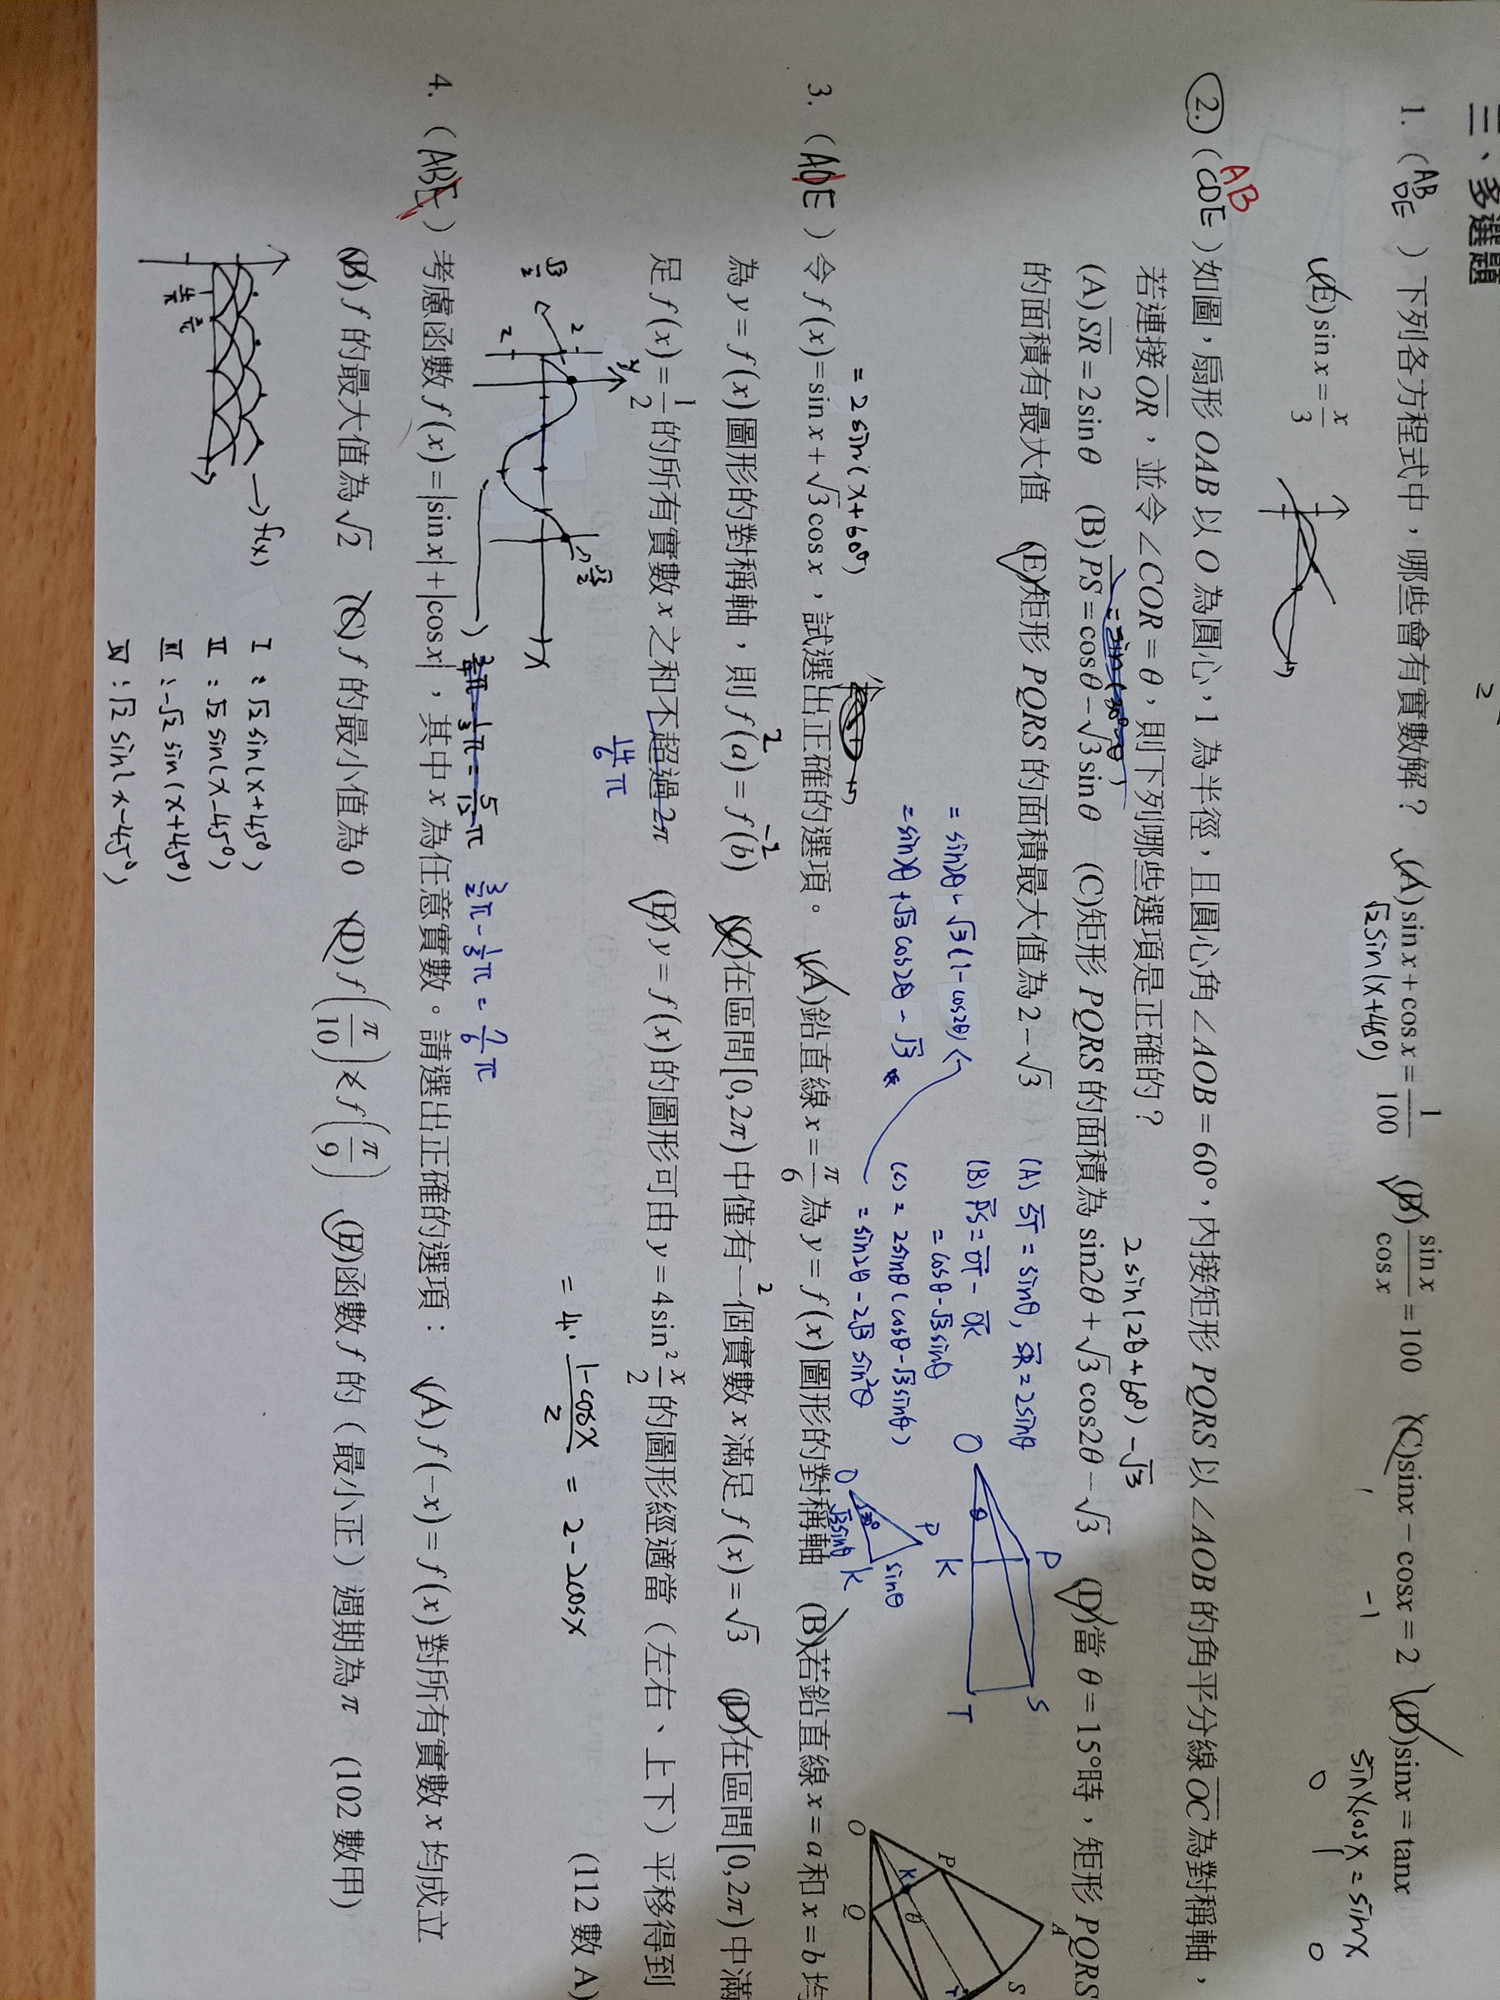 三、多選題
1.（ABDE）下列各方程式中，哪些會有實數解？ (A) sin x + cos x = 1/100 (B) sin x/cos x = 100 (C) sinx − cosx = 2 (D) sinx = tanx
√2 sin(x+45°)
1 −1
sinxcosx = sinx
0 1 0
(E) sin x = x/3
AB
2.（CDE）如圖，扇形 OAB 以 O 為圓心，1 為半徑，且圓心角 ∠AOB = 60°，內接矩形 PQRS 以 ∠AOB 的角平分線 OC 為對稱軸，
若連接 OR，並令 ∠COR = θ，則下列哪些選項是正確的？
2 sin(2θ+60°) − √3
(A) SR = 2 sin θ (B) PS = cos θ − √3 sin θ (C)矩形 PQRS 的面積為 sin 2θ + √3 cos 2θ − √3 (D)當 θ = 15°時，矩形 PQRS
的面積有最大值 (E)矩形 PQRS 的面積最大值為 2 − √3
(A) ST = sinθ, SR = 2sinθ
(B) PS = OT − OK
= cosθ − √3sinθ
(C) = 2sinθ(cosθ − √3sinθ)
= sin2θ − 2√3 sin²θ
= sin2θ − √3(1−cos2θ)
= sin2θ + √3cos2θ − √3
O P S K T θ
O P K 30° sinθ √3sinθ
O P Q K θ T S A
= 2 sin(x+60°)
3.（ADE）令 f(x) = sin x + √3 cos x，試選出正確的選項。 (A)鉛直線 x = π/6 為 y = f(x) 圖形的對稱軸 (B)若鉛直線 x = a 和 x = b 均
為 y = f(x) 圖形的對稱軸，則 f(a) = f(b) (C)在區間[0, 2π) 中僅有一個實數 x 滿足 f(x) = √3 (D)在區間[0, 2π) 中滿
2 −2 2
足 f(x) = 1/2 的所有實數 x 之和不超過 2π (E) y = f(x) 的圖形可由 y = 4 sin² x/2 的圖形經適當（左右、上下）平移得到
14/6 π
(112 數 A)
= 4 · (1−cosx)/2 = 2 − 2cosx
3/2 π − 1/3 π = 7/6 π
4.（ABE）考慮函數 f(x) = |sin x| + |cos x|，其中 x 為任意實數。請選出正確的選項： (A) f(−x) = f(x) 對所有實數 x 均成立
(B) f 的最大值為 √2 (C) f 的最小值為 0 (D) f(π/10) < f(π/9) (E)函數 f 的（最小正）週期為 π (102 數甲)
→ f(x)
I : √2 sin(x+45°)
II : √2 sin(x−45°)
III : −√2 sin(x+45°)
IV : √2 sin(x−45°)